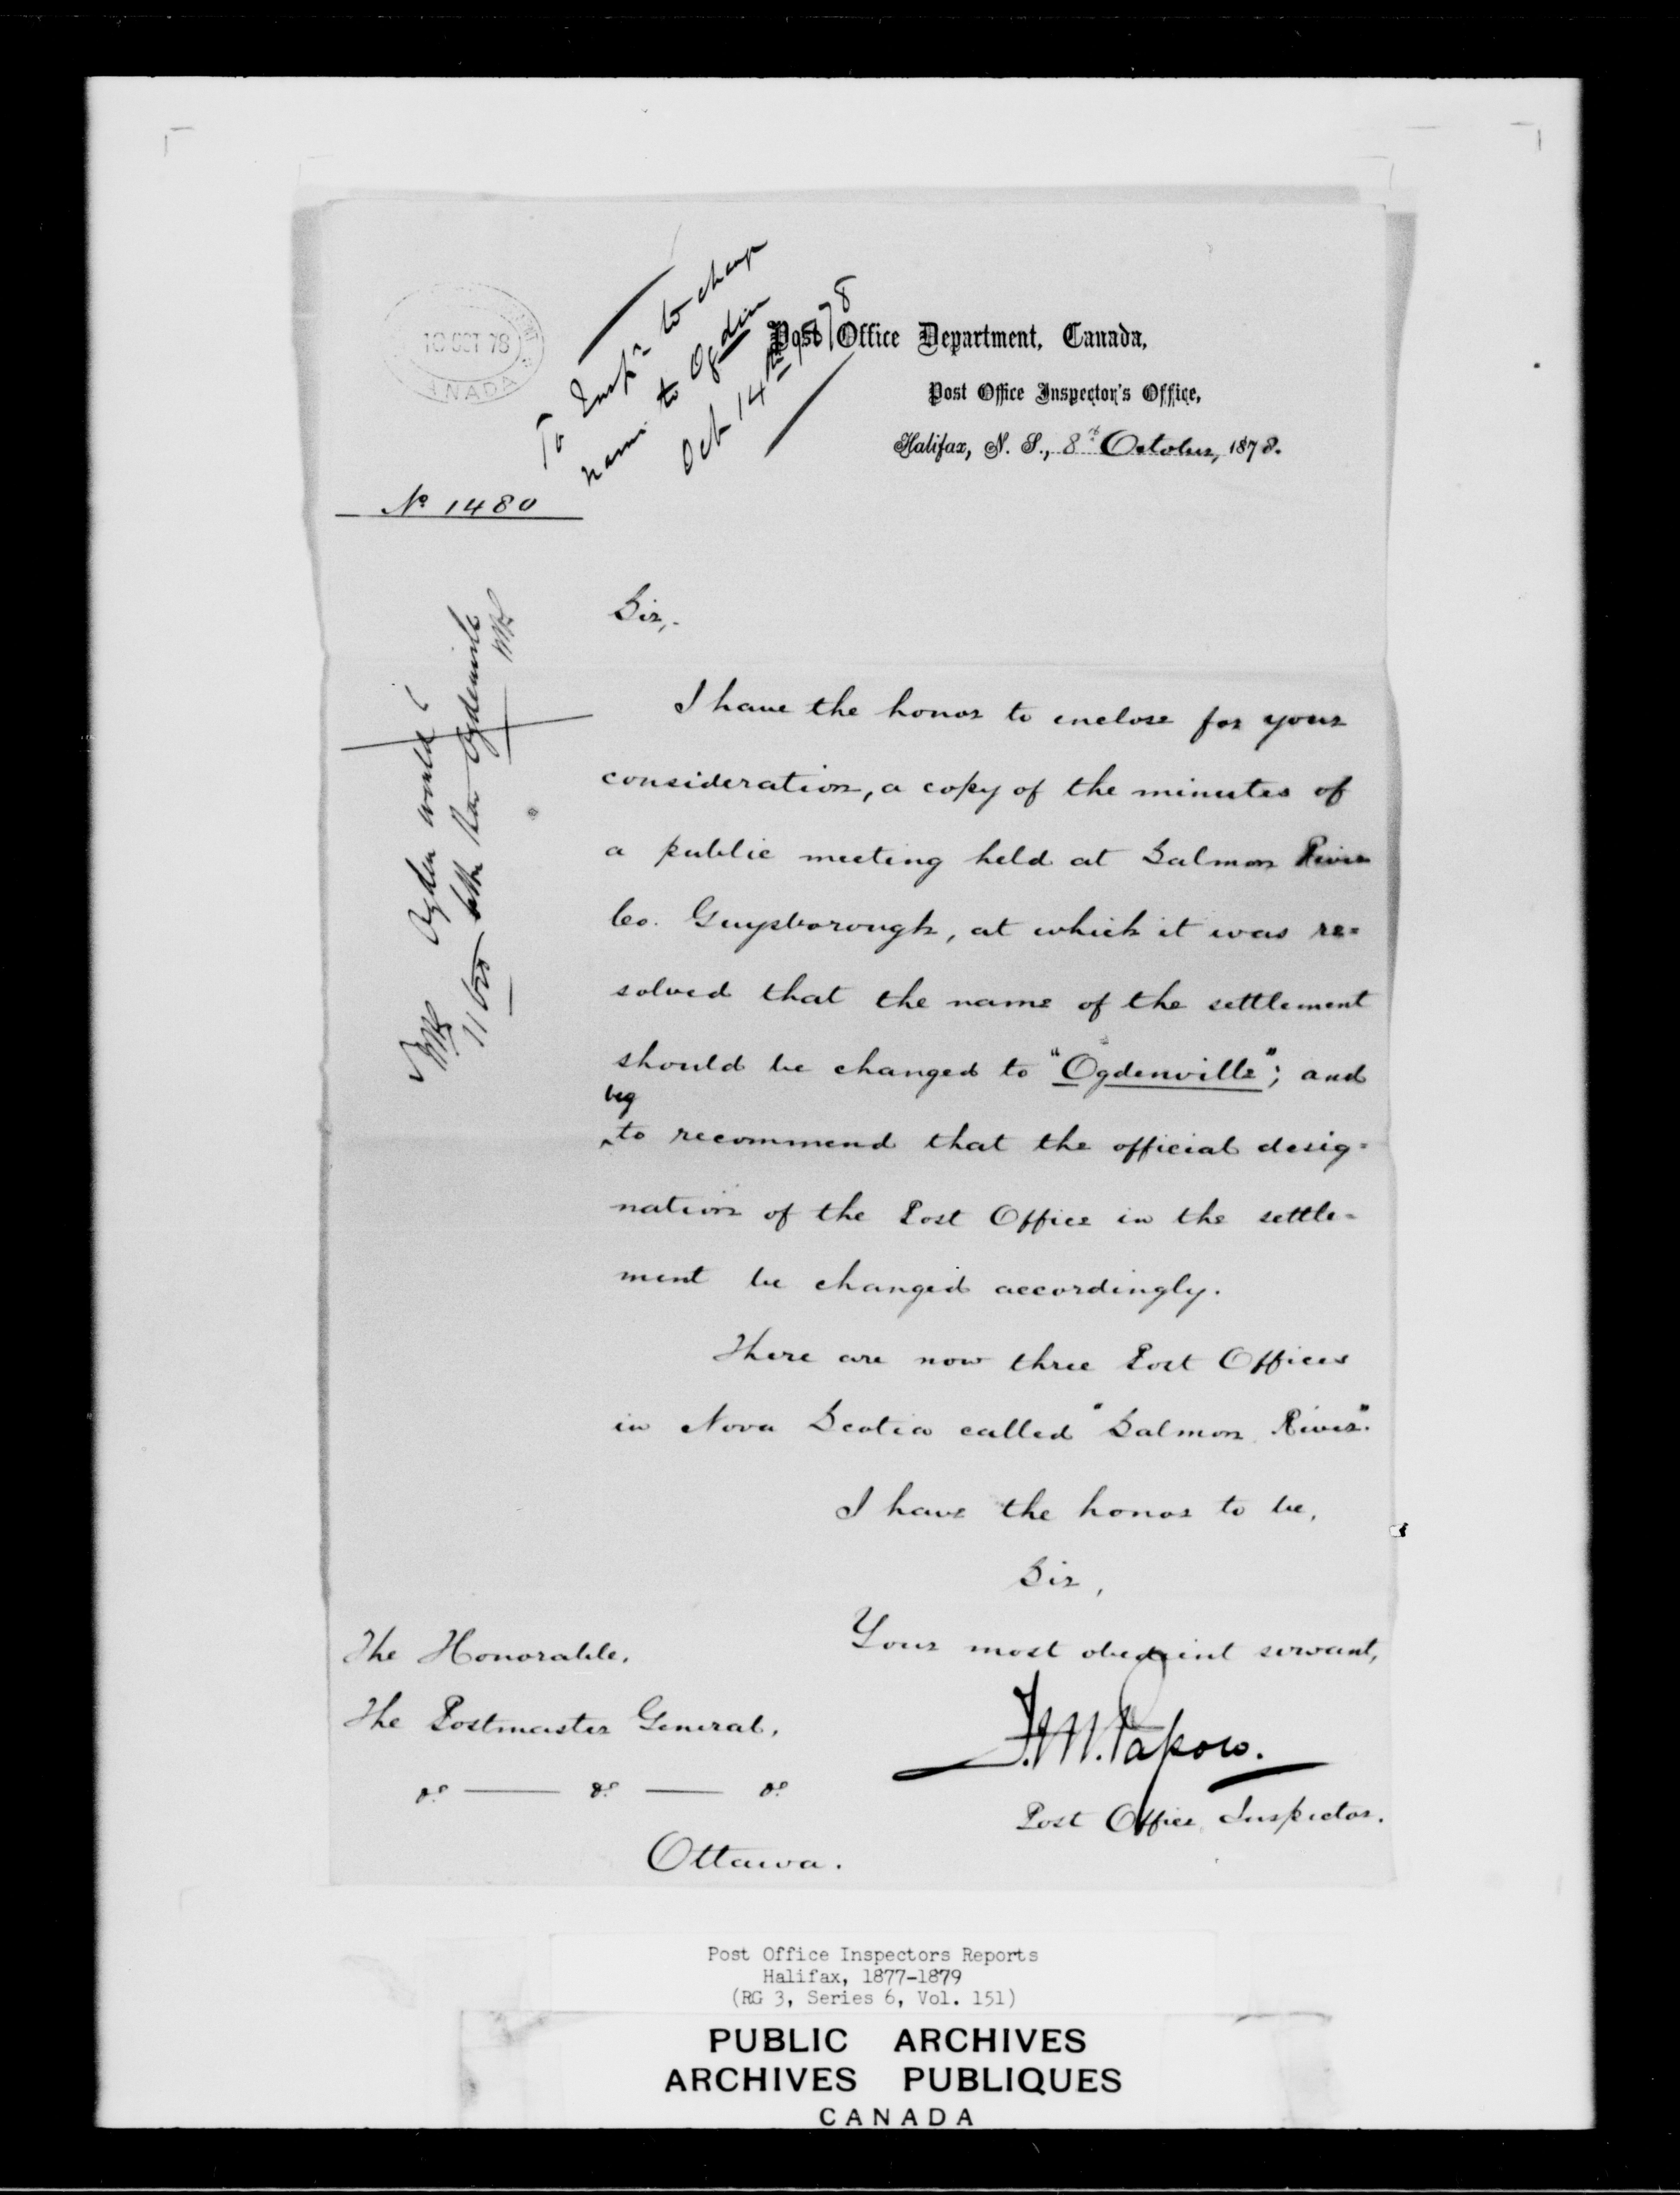 10 OCT 78
CANADA
To Inspr to change
name to Ogden
Oct 14th 1878
Post Office Department, Canada,
Post Office Inspector's Office,
Halifax, N. S., 8th October, 1878.
No 1480
Ogden would
be better than Ogdenville
Sir,
I have the honor to inclose for your
consideration, a copy of the minutes of
a public meeting held at Salmon River
Co. Guysborough, at which it was re=
solved that the name of the settlement
should be changed to "Ogdenville"; and
beg
to recommend that the official desig=
nation of the Post Office in the settle=
ment be changed accordingly.
There are now three Post Offices
in Nova Scotia called "Salmon River".
I have the honor to be,
Sir,
Your most obedient servant,
The Honorable,
The Postmaster General,
&c — &c — &c
Ottawa.
Post Office Inspector.
Post Office Inspectors Reports
Halifax, 1877-1879
(RG 3, Series 6, Vol. 151)
PUBLIC ARCHIVES
ARCHIVES PUBLIQUES
CANADA